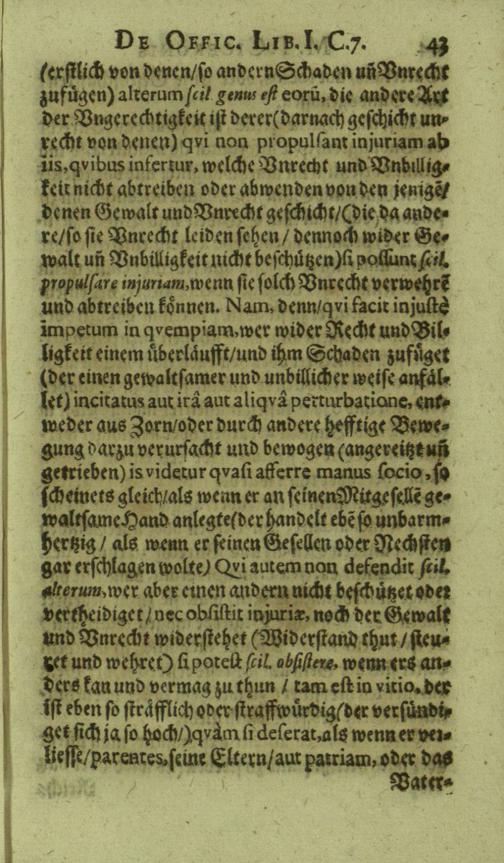 DE OFFIC. LIB. I. C. 7. 43
(erstlich von denen/so andern Schaden uñ Vnrecht
zufügen) alterum scil. genus est eorũ, die andere Art
der Vngerechtigkeit ist derer (darnach geschicht un-
recht von denen) qvi non propulsant injuriam ab
iis, qvibus infertur, welche Vnrecht und Vnbillig-
keit nicht abtreiben oder abwenden von den jenigẽ/
denen Gewalt und Vnrecht geschicht/(die da ande-
re/so sie Vnrecht leiden sehen / dennoch wider Ge-
walt uñ Vnbilligkeit nicht beschützen) si possunt scil.
propulsare injuriam, wenn sie solch Vnrecht verwehrẽ
und abtreiben können. Nam, denn/qvi facit injustè
impetum in qvempiam, wer wider Recht und Bil-
ligkeit einem überläufft/und ihm Schaden zufüget
(der einen gewaltsamer und unbillicher weise anfäl-
let) incitatus aut irâ aut aliqvâ perturbatione, ent-
weder aus Zorn/oder durch andere hefftige Bewe-
gung darzu verursacht und bewogen (angereitzt uñ
getrieben) is videtur qvasi afferre manus socio, so
scheinets gleich/als wenn er an seinen Mitgesellẽ ge-
waltsame Hand anlegte (der handelt ebẽ so unbarm-
hertzig / als wenn er seinen Gesellen oder Nechsten
gar erschlagen wolte) Qvi autem non defendit scil.
alterum, wer aber einen andern nicht beschützet oder
vertheidiget / nec obsistit injuriæ, noch der Gewalt
und Vnrecht widerstehet (Widerstand thut / steu-
ret und wehret) si potest scil. obsistere, wenn ers an-
ders kan und vermag zu thun / tam est in vitio, der
ist eben so sträfflich oder straffwürdig (der versündi-
get sich ja so hoch/) qvàm si deserat, als wenn er ver-
liesse/parentes, seine Eltern/aut patriam, oder das
Vater-